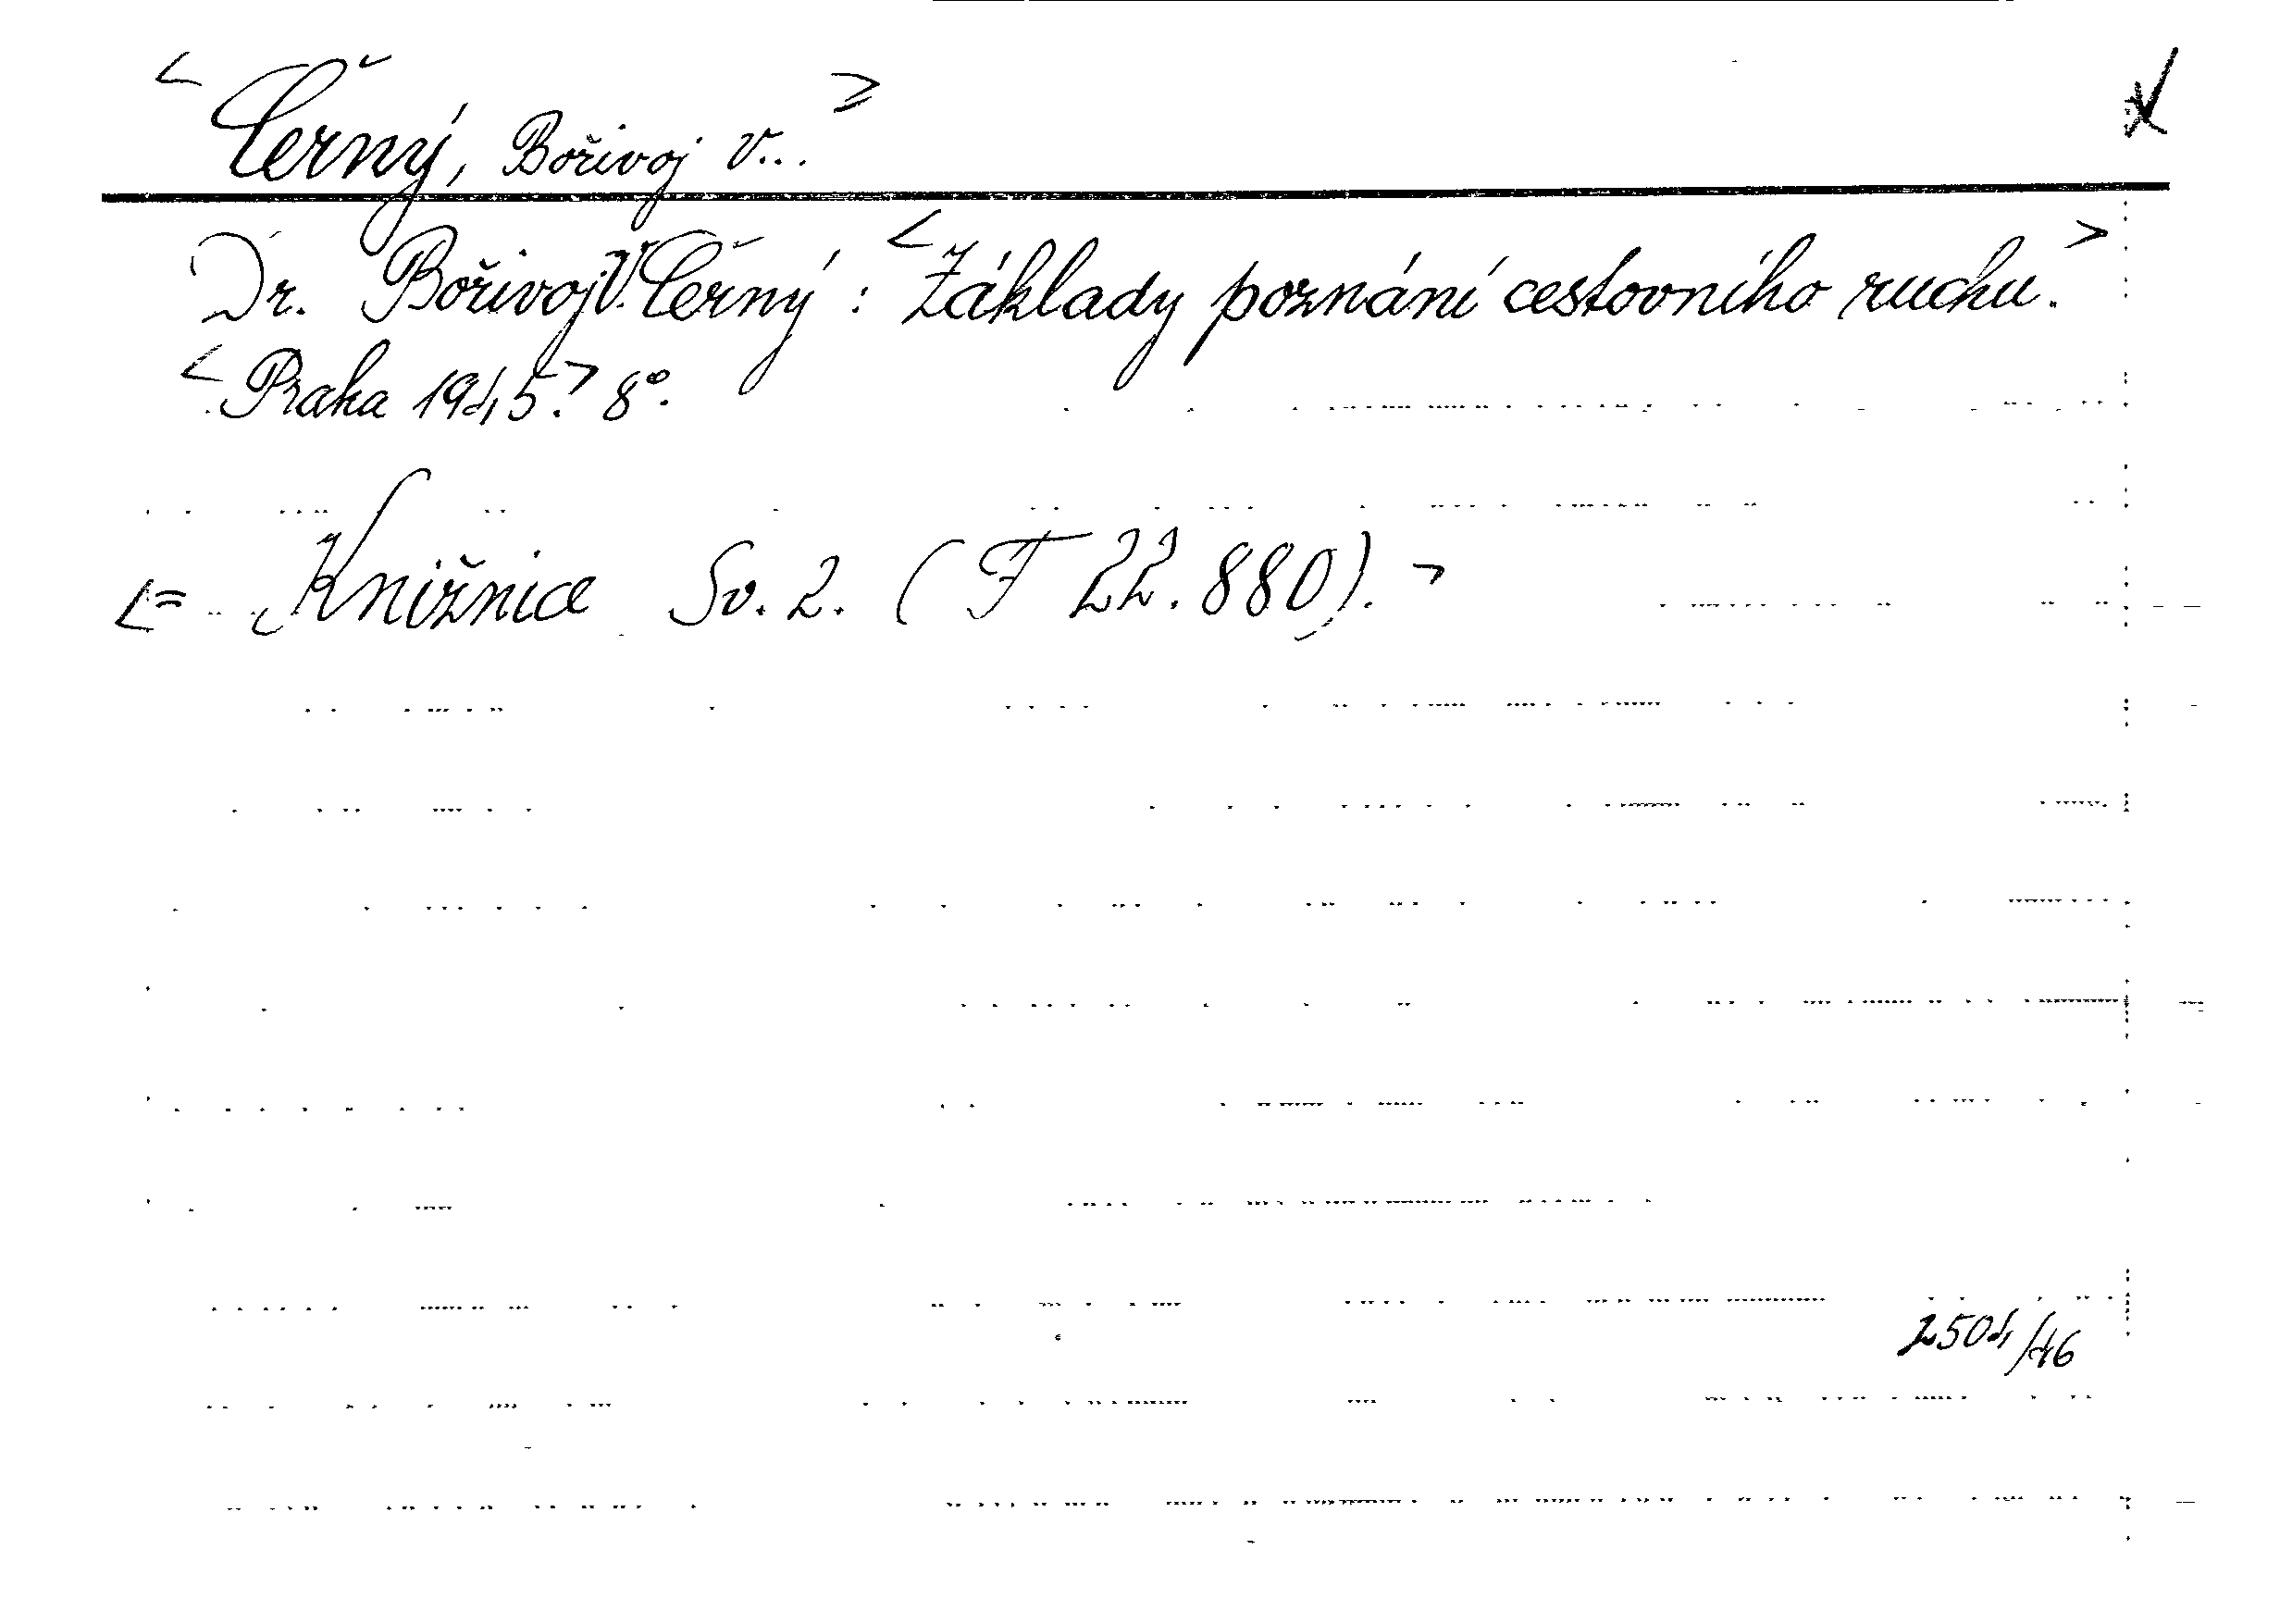 < Černý, Bořivoj V... >
Dr. Bořivoj V. Černý : < Základy poznání cestovního ruchu. >
< Praha 1945. > 8°.
<= Knižnice Sv. 2. (F 22.880). >
2504/46